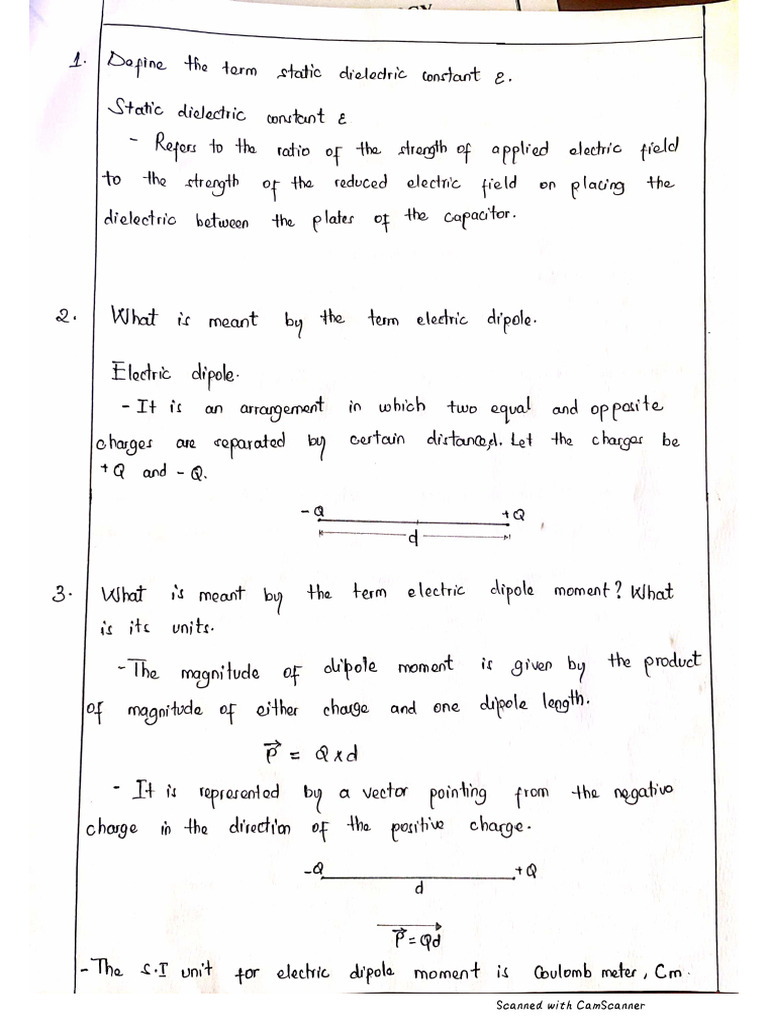 1. Define the term static dielectric constant ε.
Static dielectric constant ε
- Refers to the ratio of the strength of applied electric field
to the strength of the reduced electric field on placing the
dielectric between the plates of the capacitor.
2. What is meant by the term electric dipole.
Electric dipole.
- It is an arrangement in which two equal and opposite
charges are separated by certain distance,d. Let the charges be
+Q and -Q.
-Q +Q
d
3. What is meant by the term electric dipole moment? What
is its units.
- The magnitude of dipole moment is given by the product
of magnitude of either charge and one dipole length.
P⃗ = Q x d
- It is represented by a vector pointing from the negative
charge in the direction of the positive charge.
-Q +Q
d
P⃗ = Qd
- The S.I unit for electric dipole moment is Coulomb meter, Cm.
Scanned with CamScanner